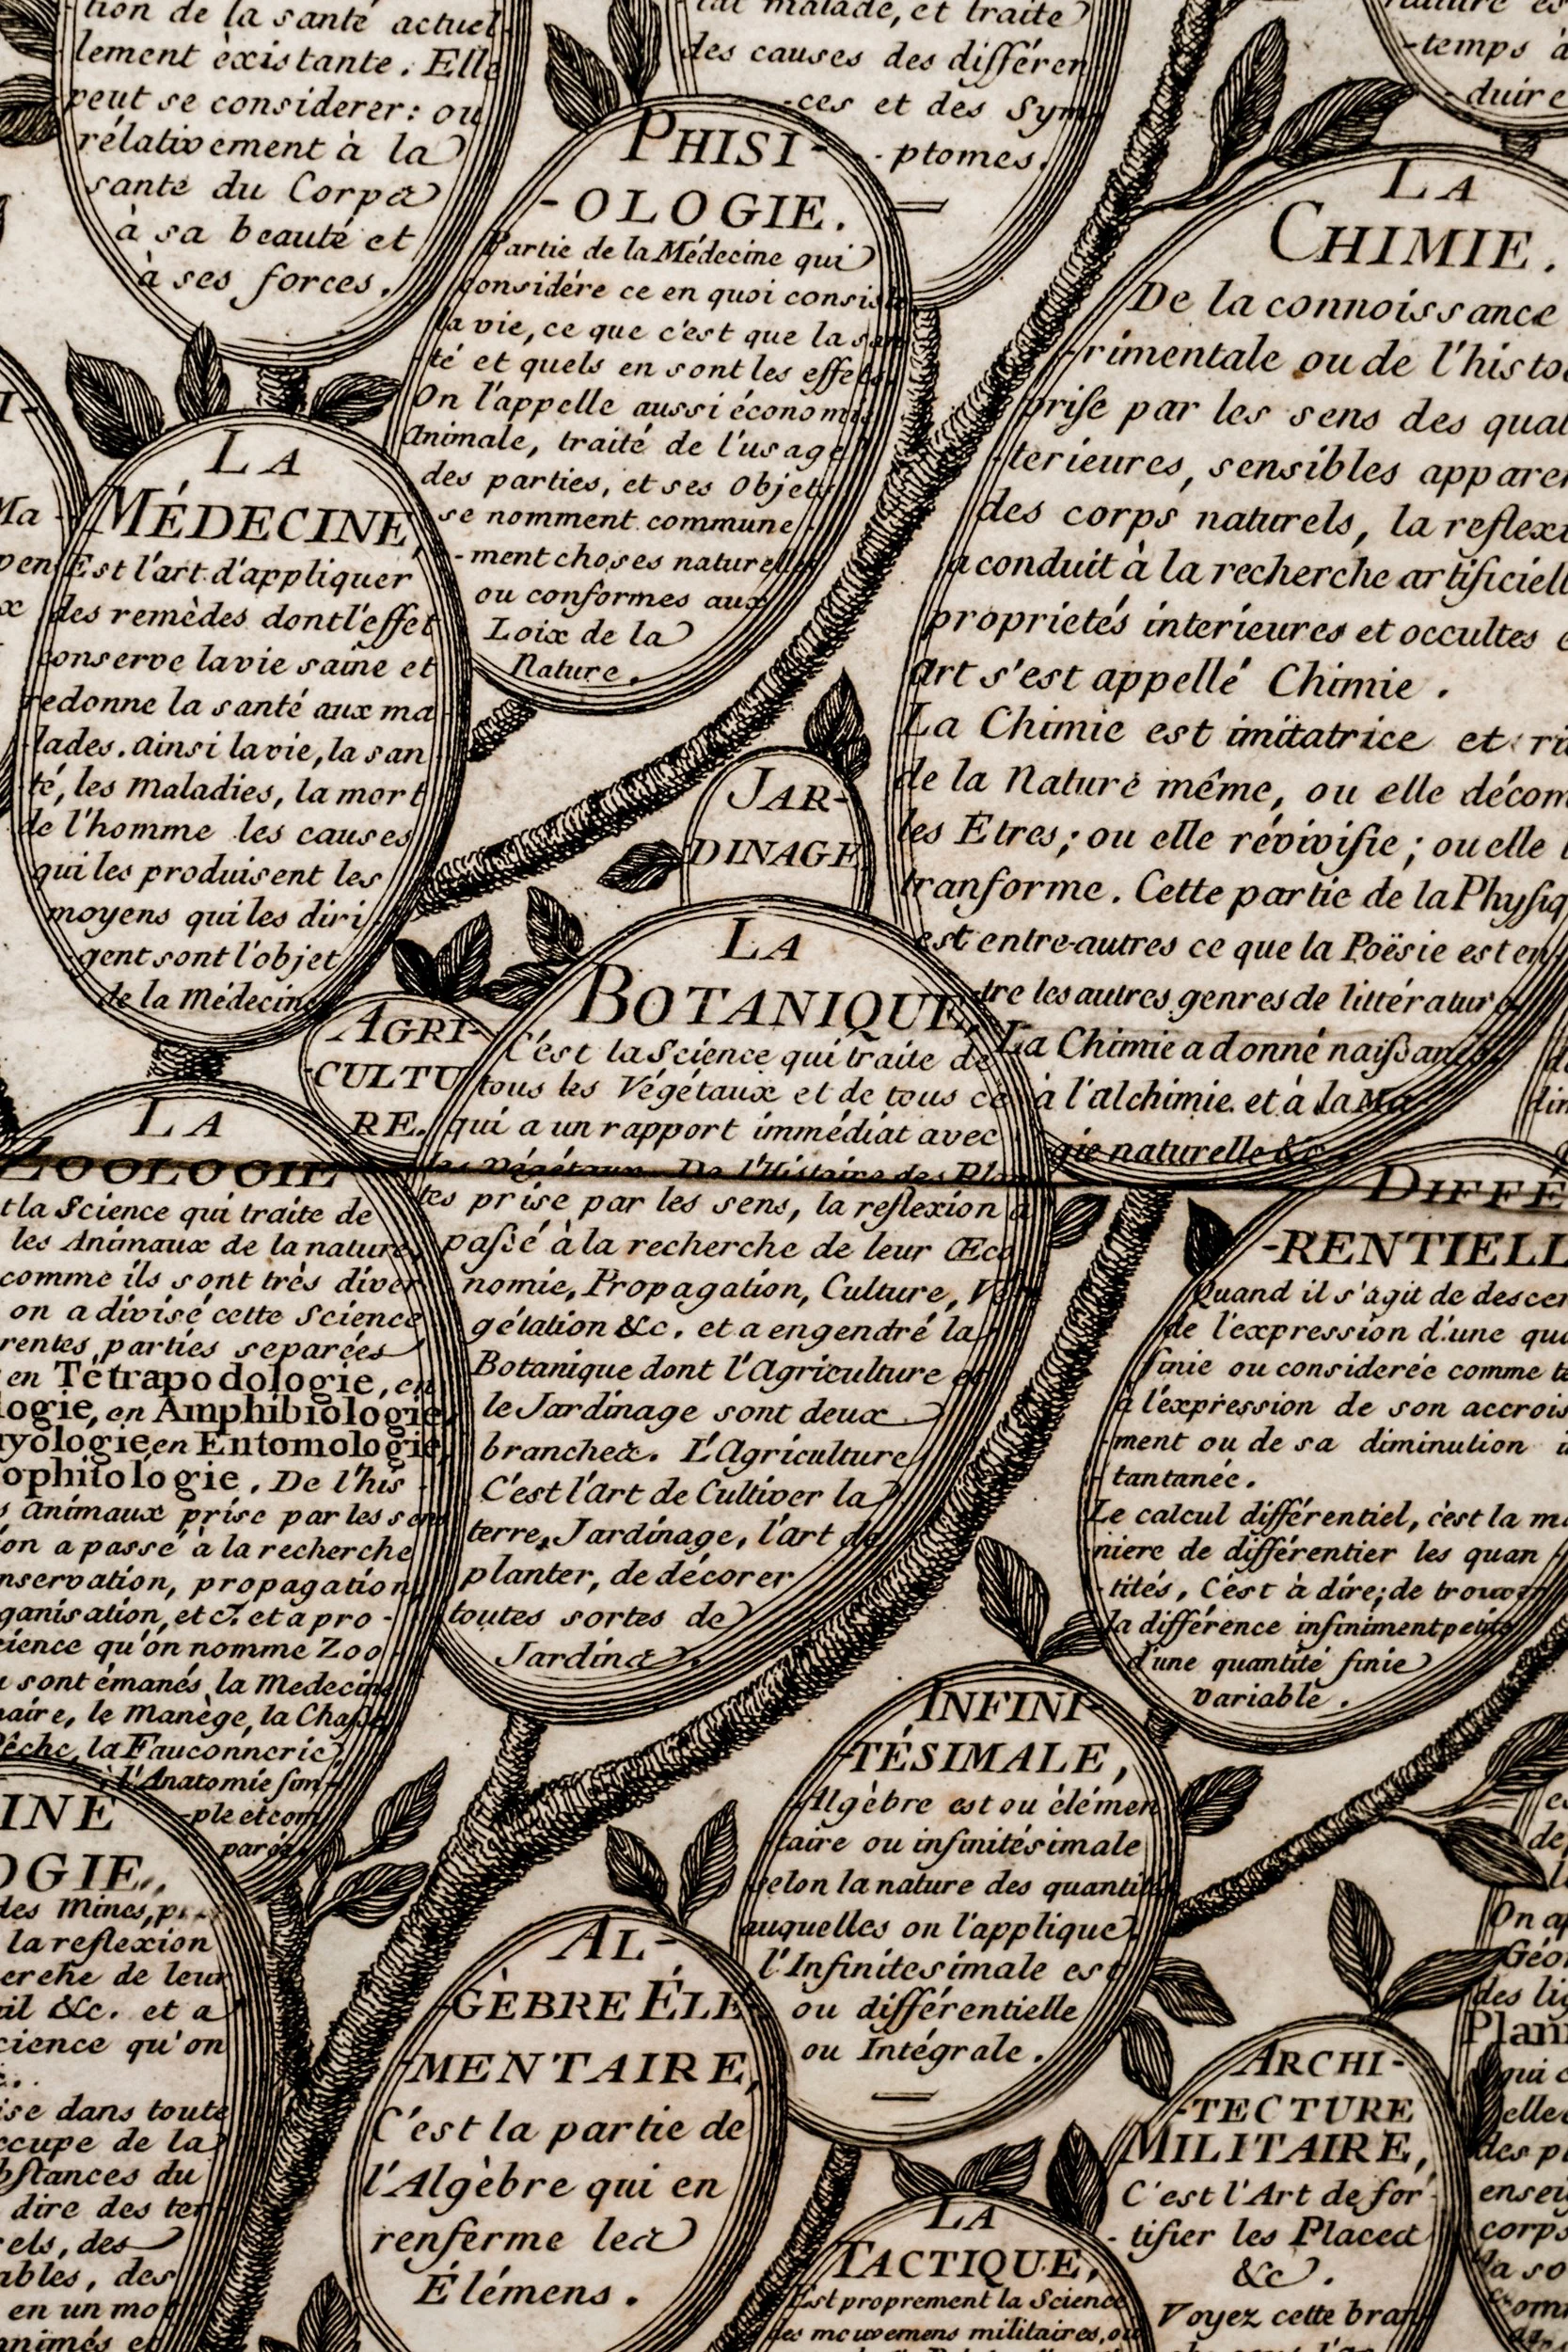 tion de la santé actuel
lement èxistante. Elle
peut se considerer: ou
rélativement à la
santé du Corps
à sa beauté et
à ses forces.
malade, et traite
des causes des différen
-ces et des Sym-
-ptomes.
-temps à
duire
PHISI-
-OLOGIE.
Partie de la Médecine qui
considére ce en quoi consiste
la vie, ce que c'est que la san
té et quels en sont les effets.
On l'appelle aussi économie
Animale, traité de l'usage
des parties, et ses Objets
se nomment commune-
-ment choses naturelles
ou conformes aux
Loix de la
Nature.
LA
CHIMIE.
De la connoissance
-rimentale ou de l'histo
prise par les sens des qual
-terieures, sensibles apparen
des corps naturels, la reflexi
a conduit à la recherche artificiell
propriétés interieures et occultes
Art s'est appellé Chimie.
La Chimie est imitatrice et ri
de la Nature même, ou elle décom
les Etres; ou elle révivifie; ou elle
tranforme. Cette partie de la Physiq
est entre-autres ce que la Poësie est en
tre les autres genres de littérature
La Chimie a donné naissance
à l'alchimie. et à la Ma-
gie naturelle &c
LA
MÉDECINE,
Est l'art d'appliquer
des remèdes dont l'effet
conserve la vie saine et
redonne la santé aux ma
lades. ainsi la vie, la san
té, les maladies, la mort
de l'homme les causes
qui les produisent les
moyens qui les diri
gent sont l'objet
de la Médecine
JAR-
DINAGE
AGRI-
-CULTU
RE.
LA
BOTANIQUE,
C'est la Science qui traite de
tous les Végétaux et de tous ce
qui a un rapport immédiat avec
les Végétaux. De l'Histoire des Plan
tes prise par les sens, la reflexion a
passé à la recherche de leur Œco
nomie, Propagation, Culture, Vé-
gétation &c. et a engendré la
Botanique dont l'Agriculture et
le Jardinage sont deux
branches. L'Agriculture
C'est l'art de Cultiver la
terre, Jardinage, l'art de
planter, de décorer
toutes sortes de
Jardins.
LA
ZOOLOGIE
t la Science qui traite de
les Animaux de la nature,
comme ils sont très diver
on a divisé cette Science
rentes parties separées
en Tétrapodologie, en
logie, en Amphibiologie,
yologie en Entomologie,
ophitologie. De l'his
Animaux prise par les sens
on a passé à la recherche
nservation, propagation,
ganisation, etc. et a pro-
cience qu'on nomme Zoo
sont émanés la Medecine
naire, le Manège, la Chasse,
Pêche, la Fauconnerie,
l'Anatomie sim-
-ple et com
parée
DIFFÉ
-RENTIELL
Quand il s'agit de descen
de l'expression d'une qua
finie ou considerée comme te
à l'expression de son accrois
-ment ou de sa diminution i
tantanée.
Le calcul différentiel, c'est la ma
niere de différentier les quan
tités, C'est à dire; de trouver
la différence infiniment petite
d'une quantité finie
variable.
INFINI-
-TÉSIMALE,
Algèbre est ou élémen
taire ou infinitésimale
selon la nature des quantités
auquelles on l'applique
l'Infinitesimale est
ou différentielle
ou Intégrale.
INE
OGIE,
des Mines,
la reflexion
erche de leur
&c. et a
cience qu'on
ise dans toute
ccupe de la
bstances du
dire des ter
rels, des
ables, des
en un mot
animés et
AL-
GÈBRE ÉLÉ
-MENTAIRE,
C'est la partie de
l'Algèbre qui en
renferme les
Élémens.
ARCHI-
-TECTURE
MILITAIRE,
C'est l'Art de for-
-tifier les Places
&c.
Voyez cette bran
LA
TACTIQUE,
Est proprement la Science
des mouvemens militaires, ou
On ap
Géo
des lig
Plani
qui
elle
des pl
ensei
corps
la so